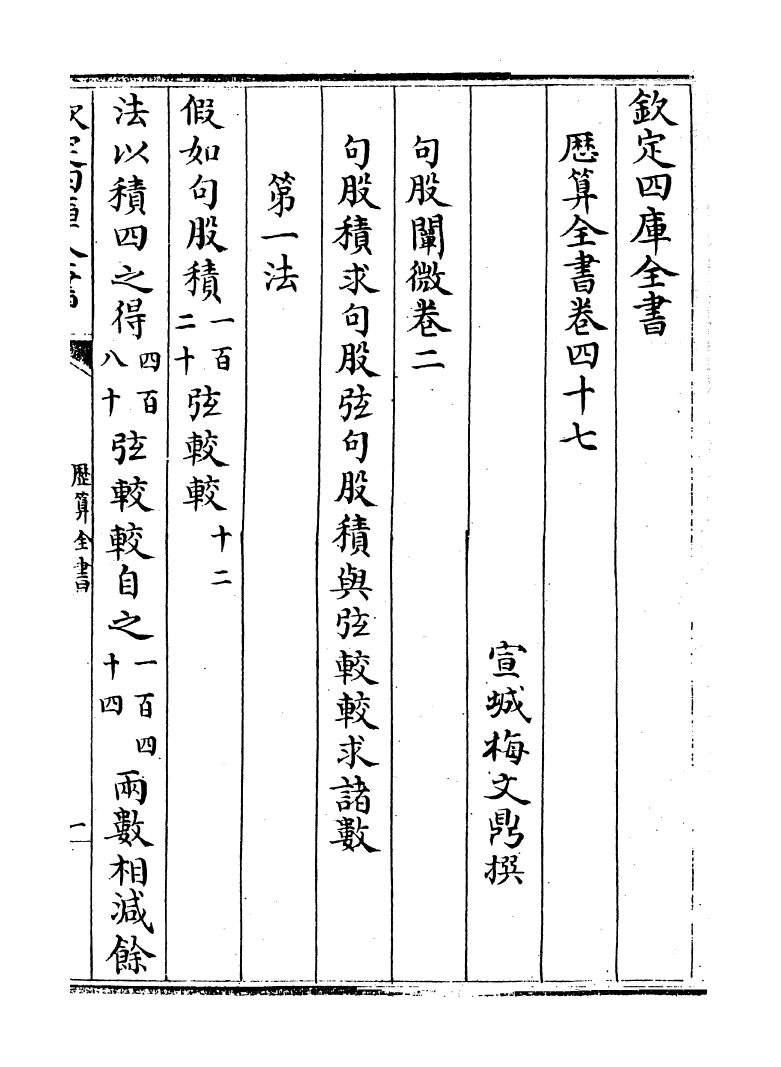 欽定四庫全書
厯算全書卷四十七
宣城梅文鼎撰
句股闡微卷二
句股積求句股弦句股積與弦較較求諸數
第一法
假如句股積一百二十弦較較十二
法以積四之得四百八十弦較較自之一百四十四兩數相減餘
欽定四庫全書
厯算全書
一